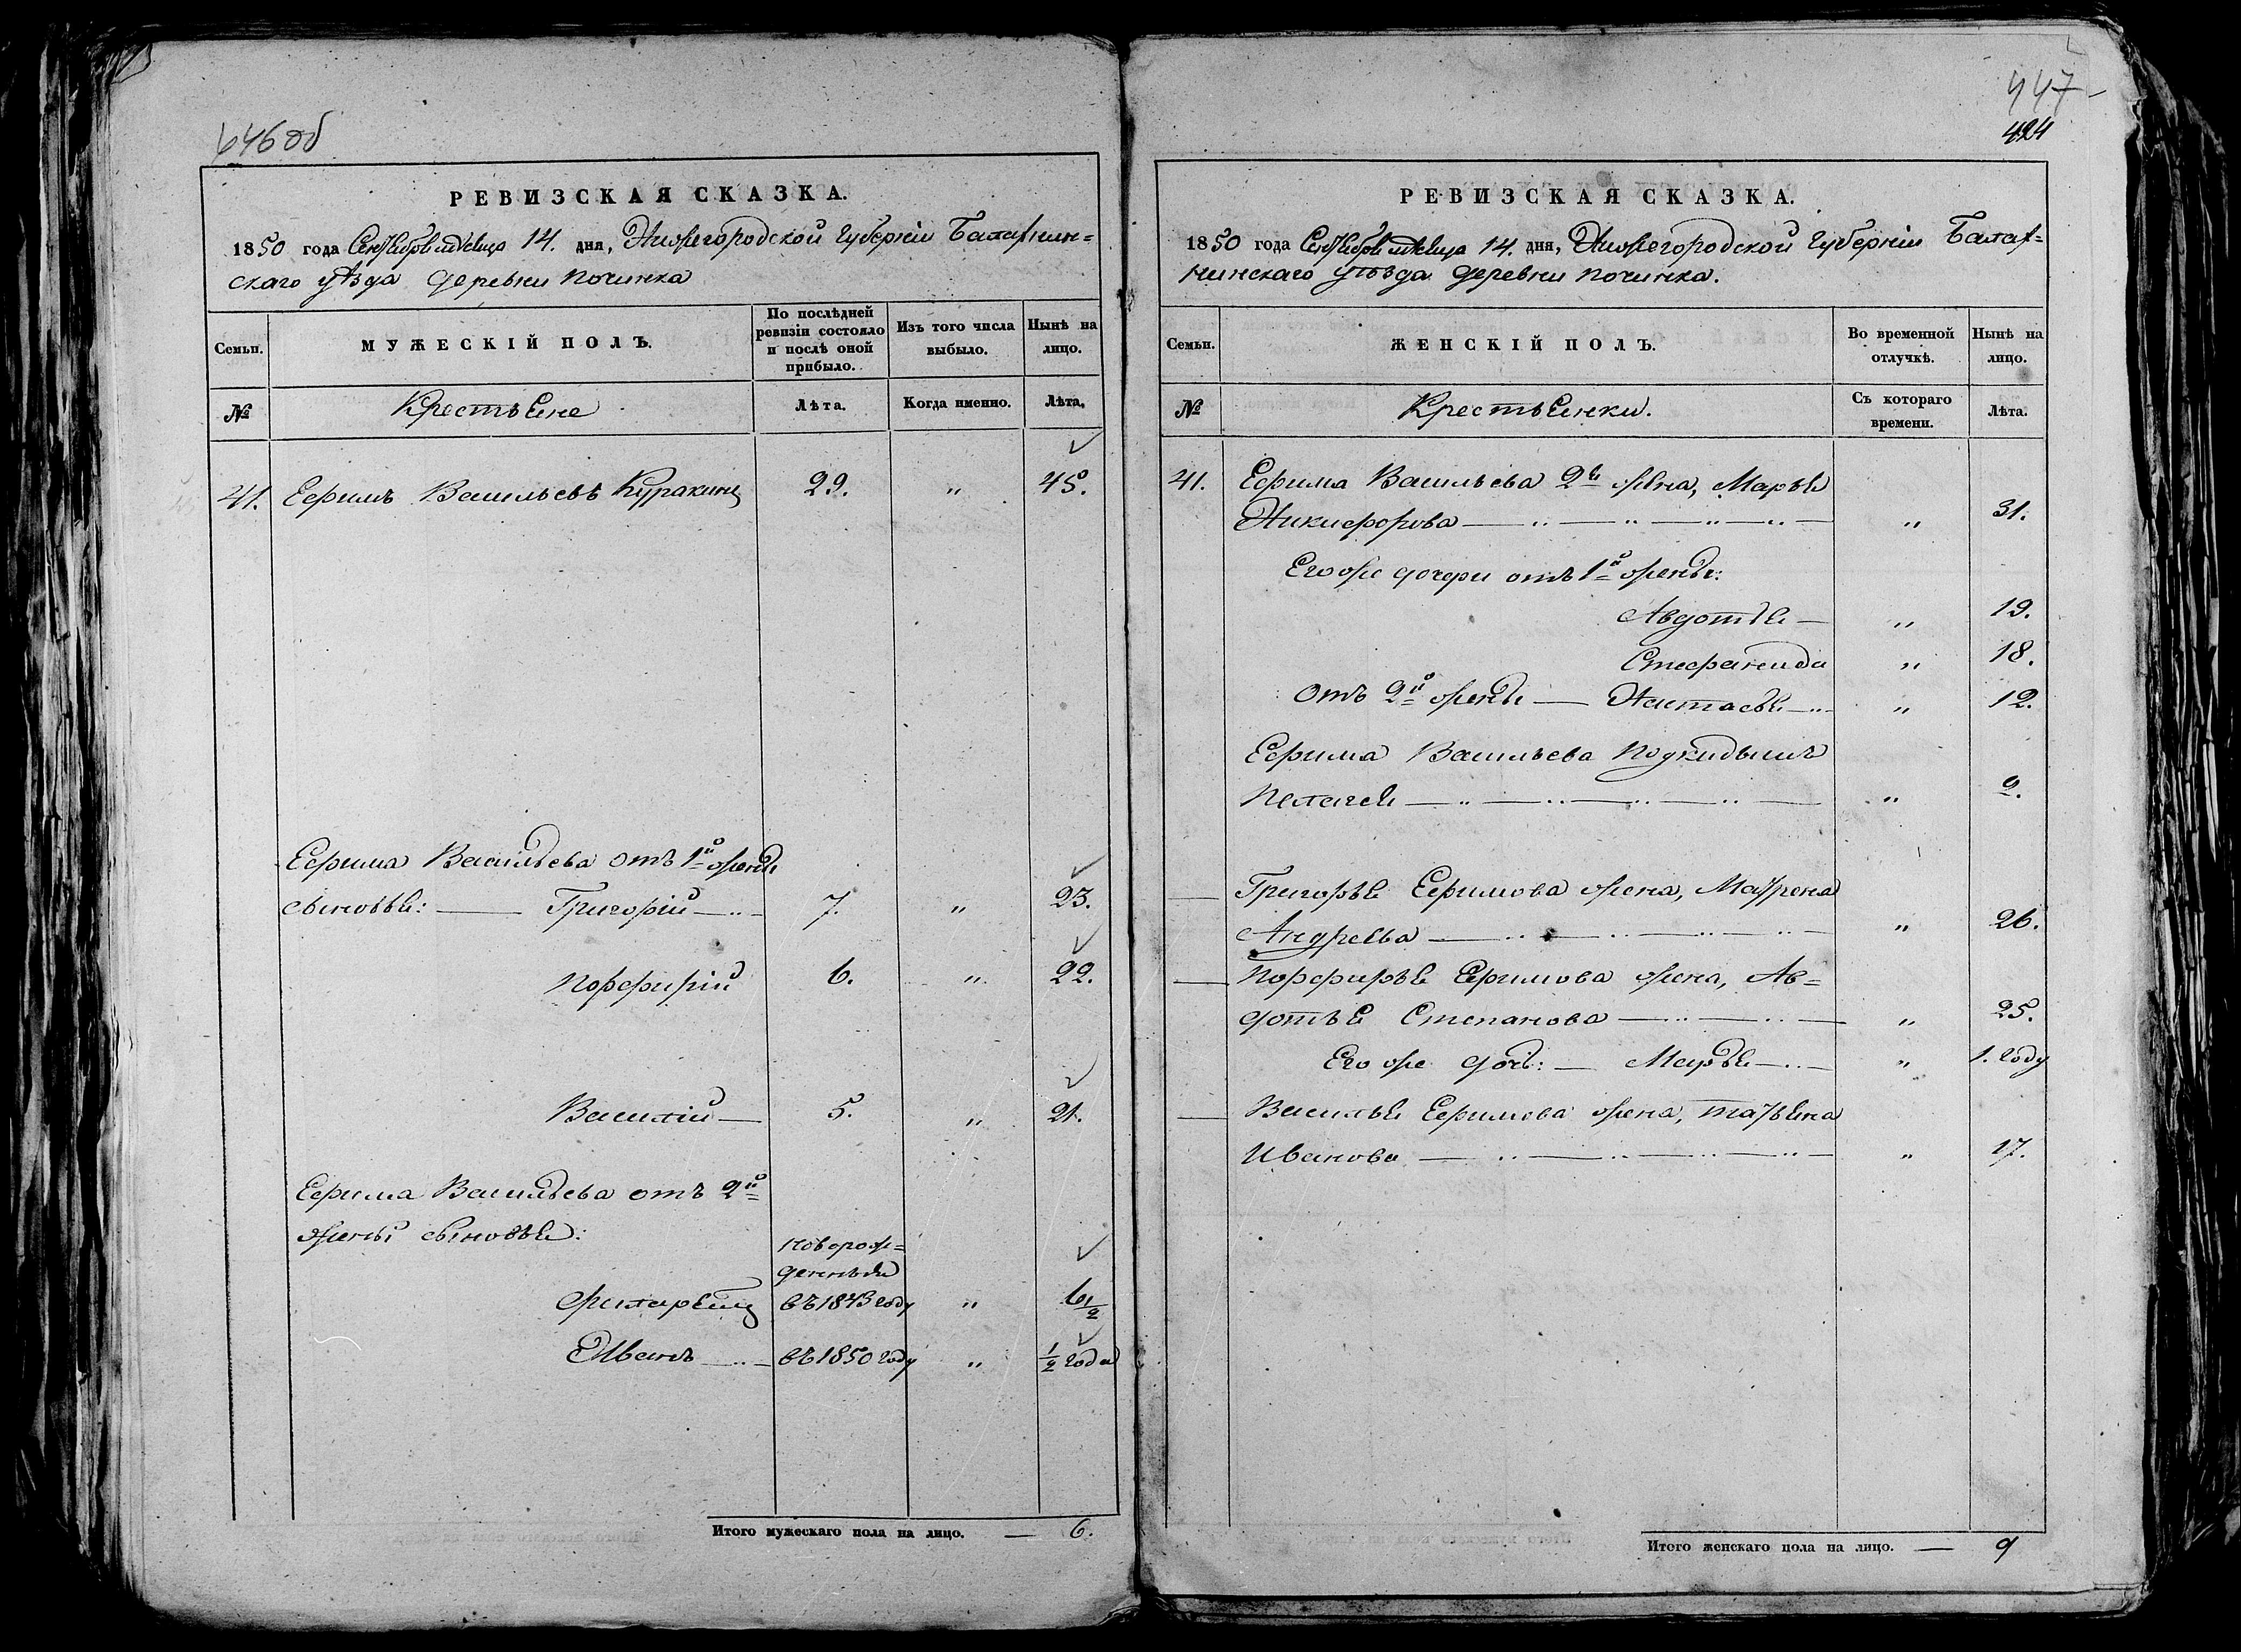 446об
РЕВИЗСКАЯ СКАЗКА.
1850 года Сентября месяца 14. дня, Нижегородской Губернiи Балахнин=
скаго уѣзда деревни Починка
Семьи.
МУЖЕСКIЙ ПОЛЪ.
По послѣдней
ревизiи состояло
и послѣ оной
прибыло.
Изъ того числа
выбыло.
Нынѣ на
лицо.
№
Крестьяне
Лѣта.
Когда именно.
Лѣта.
41. Ефимъ Васильевъ Куракинъ 29. „ 45.
Ефима Васильева отъ 1й жены
сыновья: — Григорiй — 7. „ 23.
Порфирiй 6. „ 22.
Василiй — 5. „ 21.
Ефима Васильева отъ 2й
жены сыновья:
новорож=
денныя
Филаретъ въ 1843 году „ 6 1/2
Иванъ — въ 1850 году „ 1/2 года
Итого мужескаго пола на лицо. — 6.
447
424
РЕВИЗСКАЯ СКАЗКА.
1850 года Сентября месяца 14. дня, Нижегородской Губернiи Балах=
нинскаго уѣзда деревни Починка.
Семьи.
ЖЕНСКIЙ ПОЛЪ.
Во временной
отлучкѣ.
Нынѣ на
лицо.
№
Крестьянки.
Съ котораго
времени.
Лѣта.
41. Ефима Васильева 2я жена, Марья
Никифорова — „ 31.
Его же дочери отъ 1й жены:
Авдотья — „ 19.
Стефанида „ 18.
Отъ 2й жены — Настасья — „ 12.
Ефима Васильева подкидышъ
Пелагея — „ 9.
— Григорья Ефимова жена, Матрена
Андреева — „ 26.
— Порфирья Ефимова жена, Ав=
дотья Степанова — „ 25.
Его же дочь: — Марья — „ 1. году
— Василья Ефимова жена, Татьяна
Иванова — „ 17.
Итого женскаго пола на лицо. — 9